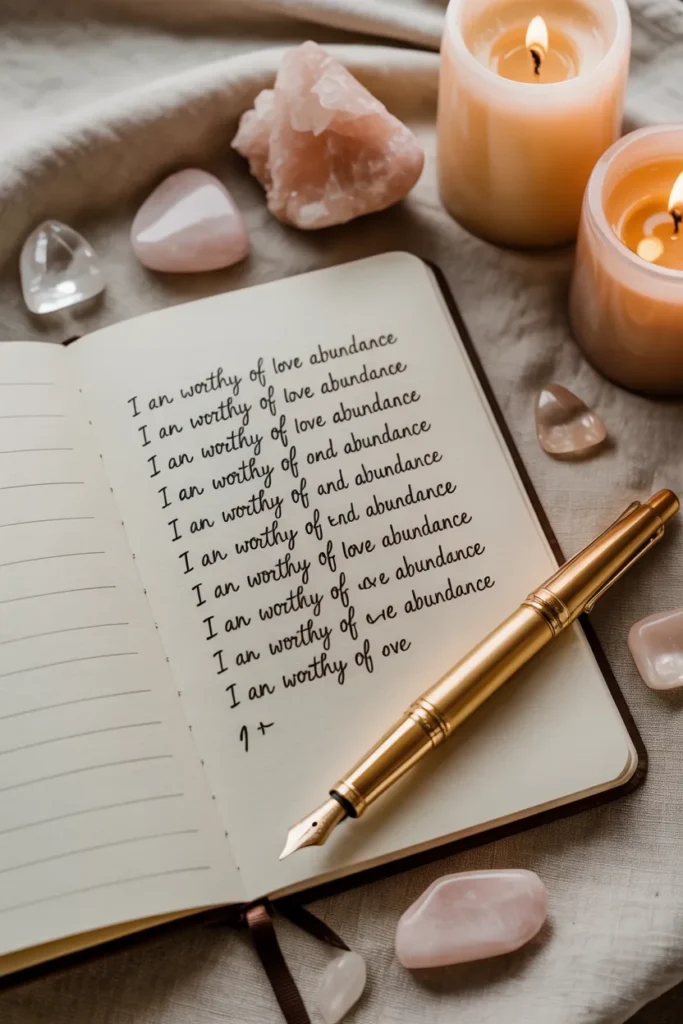 I an worthy of love abundance
I an worthy of love abundance
I an worthy of love abundance
I an worthy of ond abundance
I an worthy of and abundance
I an worthy of end abundance
I an worthy of love abundance
I an worthy of abundance
I an worthy of abundance
I an worthy of ove